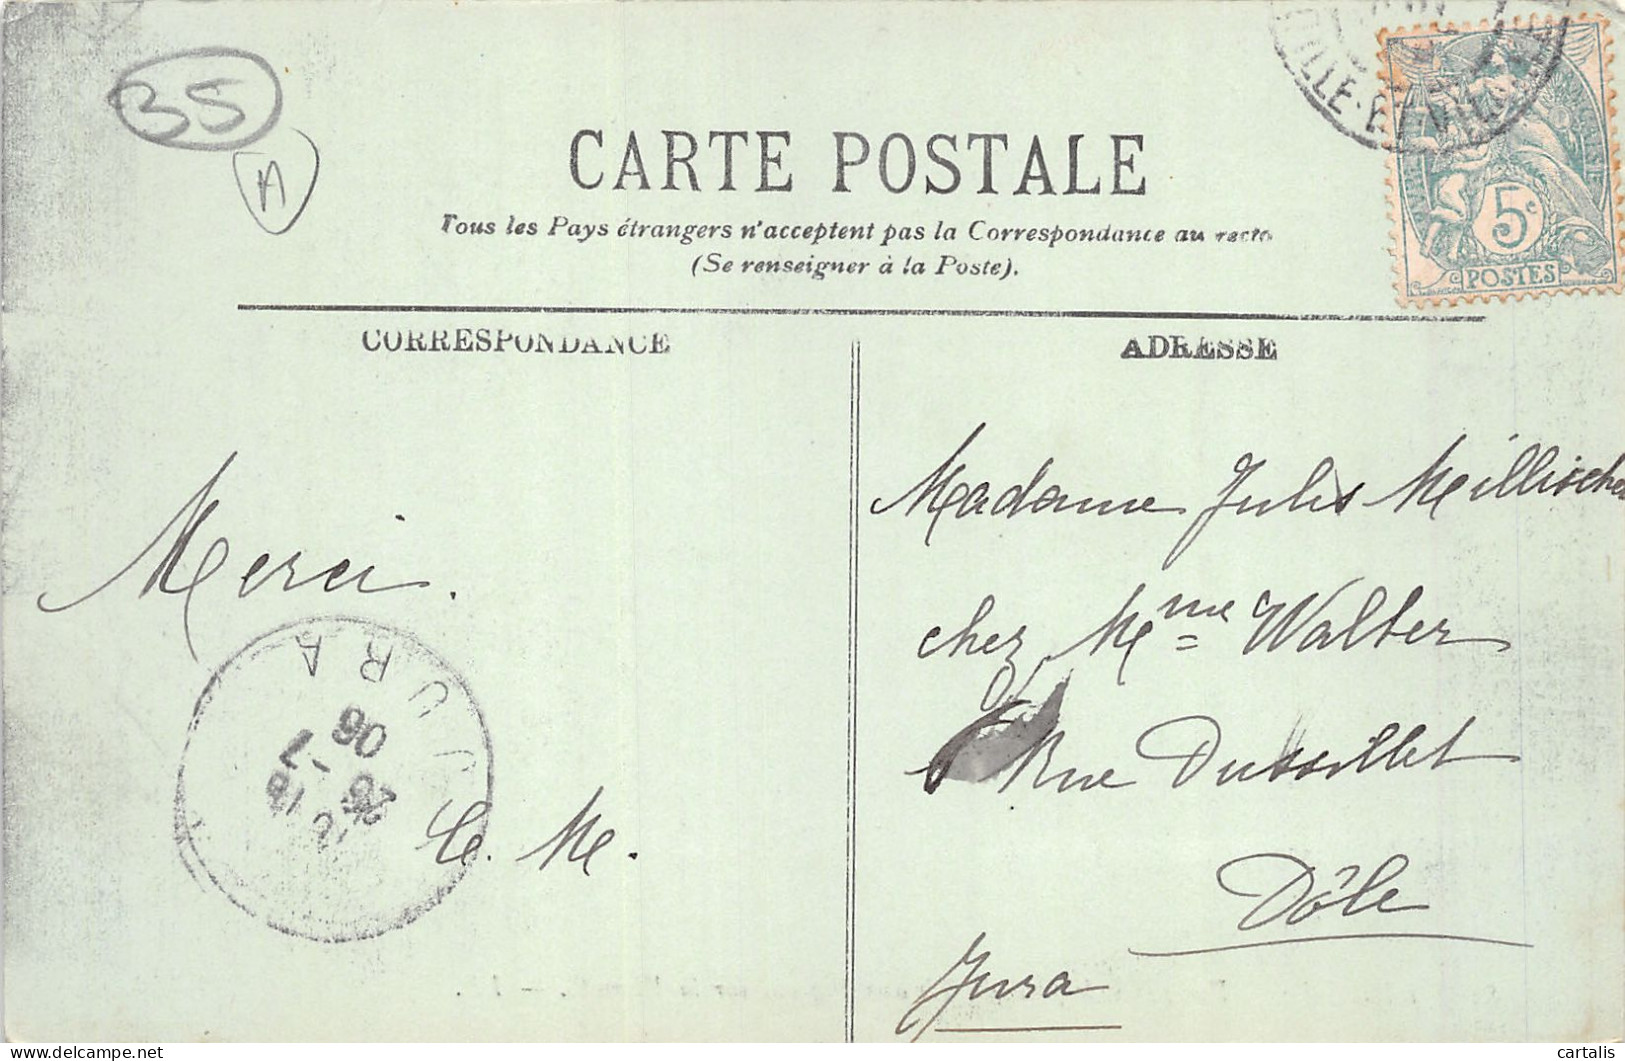 35
A
ILLE-ET-VILAINE
5c
POSTES
CARTE POSTALE
Tous les Pays étrangers n'acceptent pas la Correspondance au recto
(Se renseigner à la Poste).
CORRESPONDANCE
ADRESSE
Merci.
C. M.
JURA
26 -7
06
Madame Jules
chez Mme Walter
Rue Dusillet
Dôle
Jura
cartalis